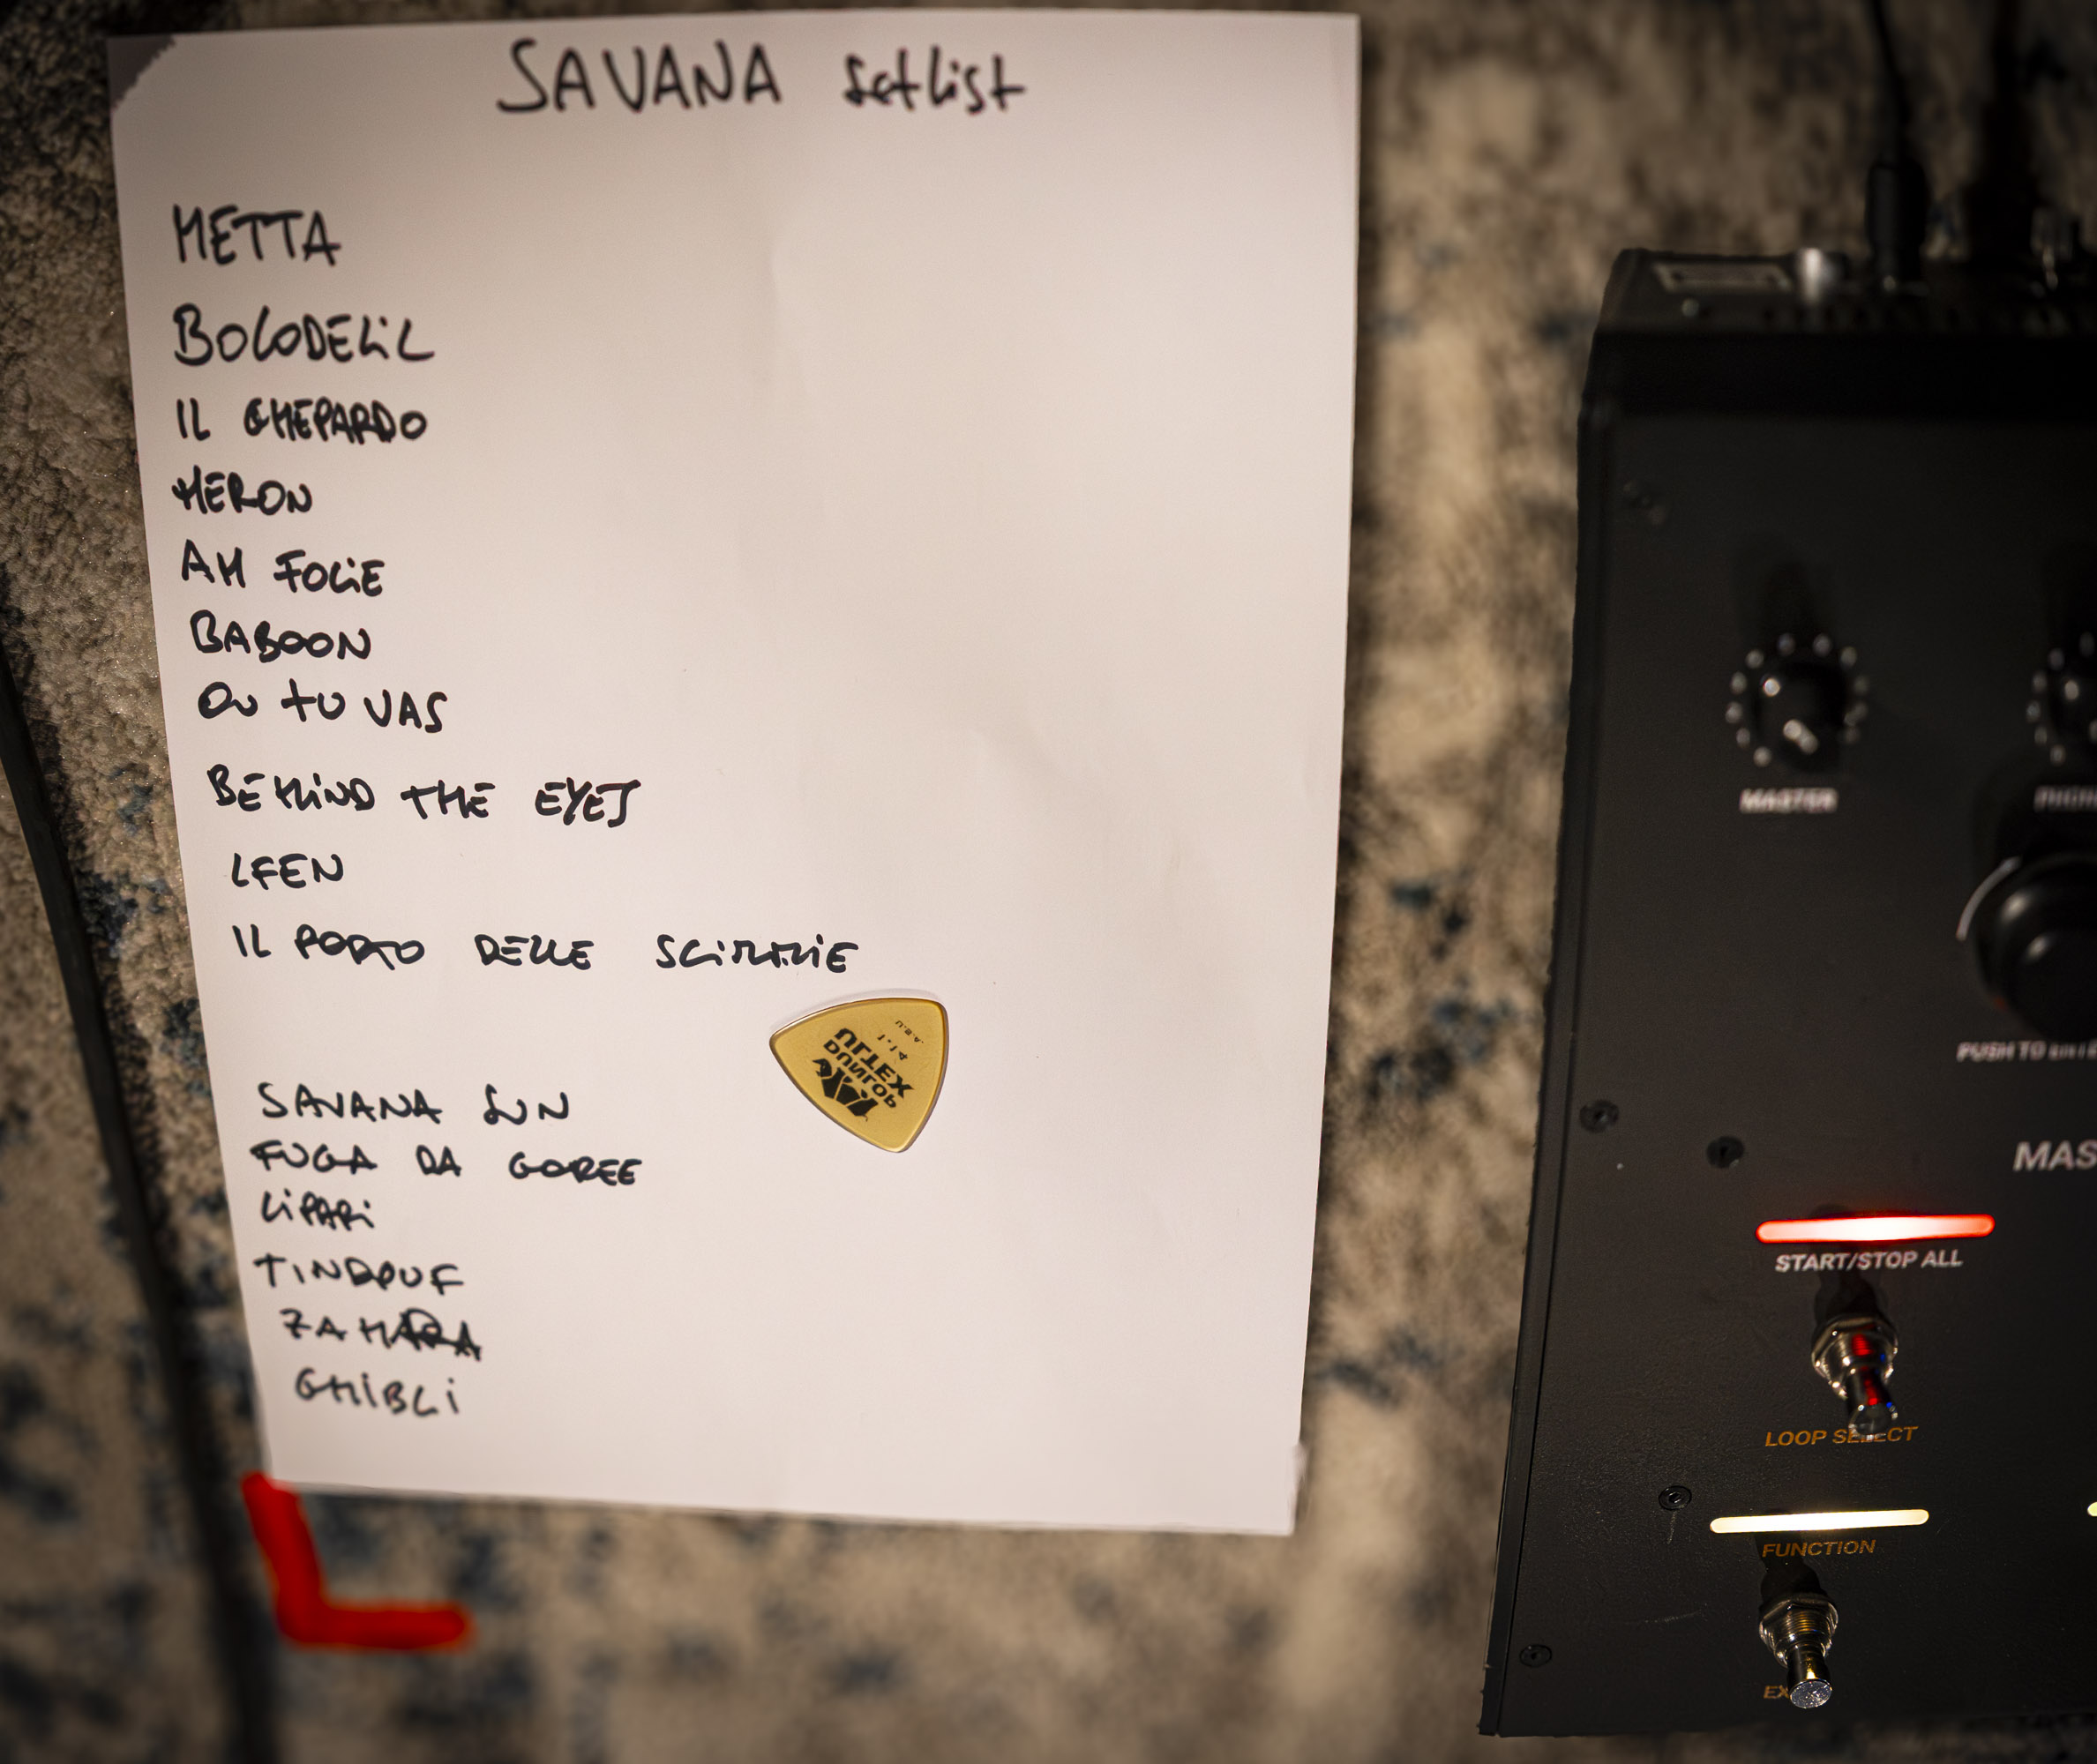 SAVANA Setlist
METTA
BOLODELIL
IL GHEPARDO
HERON
AH FOLIE
BABOON
OU TU VAS
BEHIND THE EYES
LFEN
IL PORTO DELLE SCIMMIE
SAVANA SUN
FUGA DA GOREE
LIPARI
TINDOUF
ZAHARA
GHIBLI
DUNLOP
ULTEX
1.14
U.S.A.
MASTER
PUSH TO
MAS
START/STOP ALL
LOOP SELECT
FUNCTION
EX